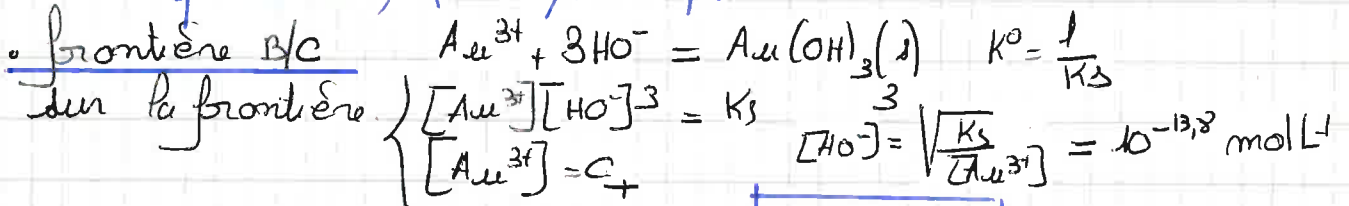 • frontière B/C Au³⁺ + 3HO⁻ = Au(OH)₃(s) K° = 1/Ks
sur la frontière { [Au³⁺][HO⁻]³ = Ks [HO⁻] = ∛(Ks/[Au³⁺]) = 10⁻¹³,⁸ mol L⁻¹
[Au³⁺] = C₊